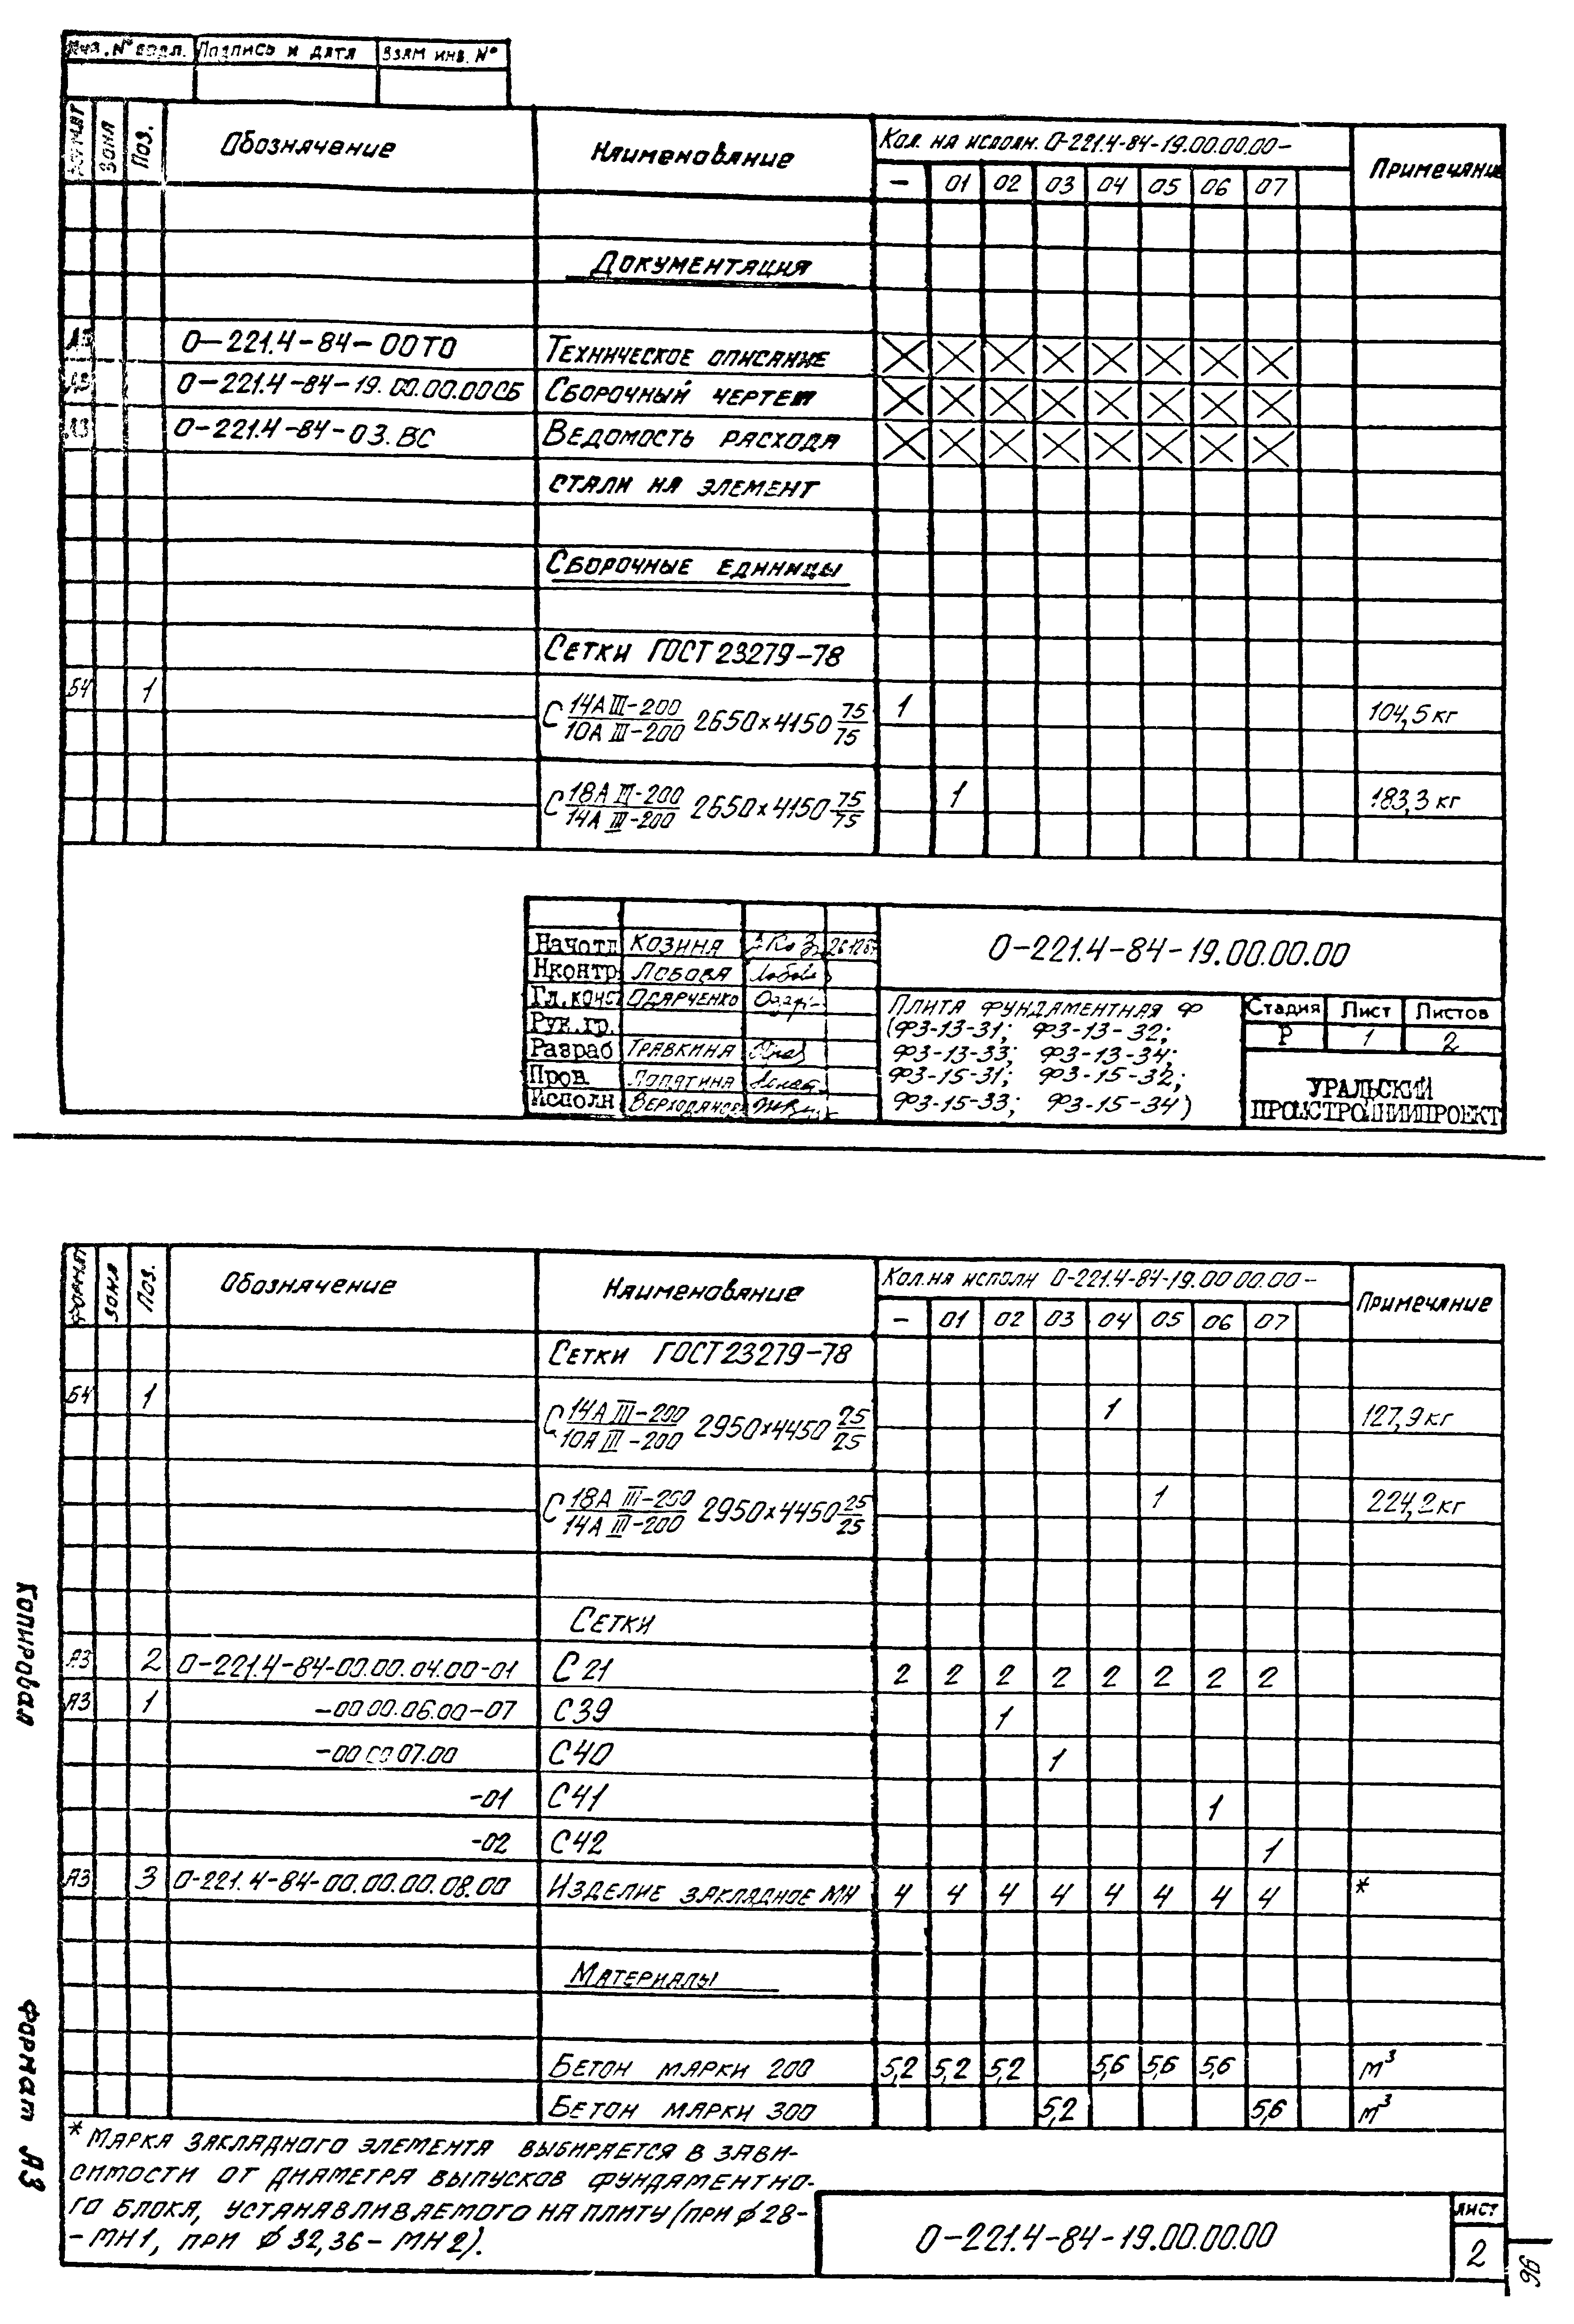 Инв. № подл. Подпись и дата Взам инв. №
Формат Зона Поз. Обозначение Наименование Кол. на исполн. 0-221.4-84-19.00.00.00- Примечание
- 01 02 03 04 05 06 07
Документация
А3 0-221.4-84-00ТО Техническое описание
А3 0-221.4-84-19.00.00.00СБ Сборочный чертеж
А3 0-221.4-84-03.ВС Ведомость расхода
стали на элемент
Сборочные единицы
Сетки ГОСТ 23279-78
Б4 1 С 14А III-200 / 10А III-200 2650×4150 75/75 1 104,5 кг
С 18А III-200 / 14А III-200 2650×4150 75/75 1 183,3 кг
Начотд Козина 261287
Нконтр Лобова
Гл.конс Одярченко
Рук.гр.
Разраб Травкина
Пров Лопатина
Исполн
0-221.4-84-19.00.00.00
Плита фундаментная Ф
(Ф3-13-31; Ф3-13-32;
Ф3-13-33; Ф3-13-34;
Ф3-15-31; Ф3-15-32;
Ф3-15-33; Ф3-15-34)
Стадия Лист Листов
Р 1 2
УРАЛЬСКИЙ
ПРОМСТРОЙНИИПРОЕКТ
Формат Зона Поз. Обозначение Наименование Кол.на исполн 0-221.4-84-19.00 00.00- Примечание
- 01 02 03 04 05 06 07
Сетки ГОСТ 23279-78
Б4 1 С 14А III-200 / 10А III-200 2950×4450 25/25 1 127,9 кг
С 18А III-200 / 14А III-200 2950×4450 25/25 1 224,2 кг
Сетки
А3 2 0-221.4-84-00.00.04.00-01 С21 2 2 2 2 2 2 2 2
А3 1 -00 00.06.00-07 С39 1
-00 00 07.00 С40 1
-01 С41 1
-02 С42 1
А3 3 0-221.4-84-00.00.00.08.00 Изделие закладное МН 4 4 4 4 4 4 4 4 *
Материалы
Бетон марки 200 5,2 5,2 5,2 5,6 5,6 5,6 м³
Бетон марки 300 5,2 5,6 м³
* Марка закладного элемента выбирается в зави-
симости от диаметра выпусков фундаментно-
го блока, устанавливаемого на плиту (при ϕ 28-
- МН1, при ϕ 32,36 - МН2).
0-221.4-84-19.00.00.00
Лист
2
Копировал
Формат А3
96